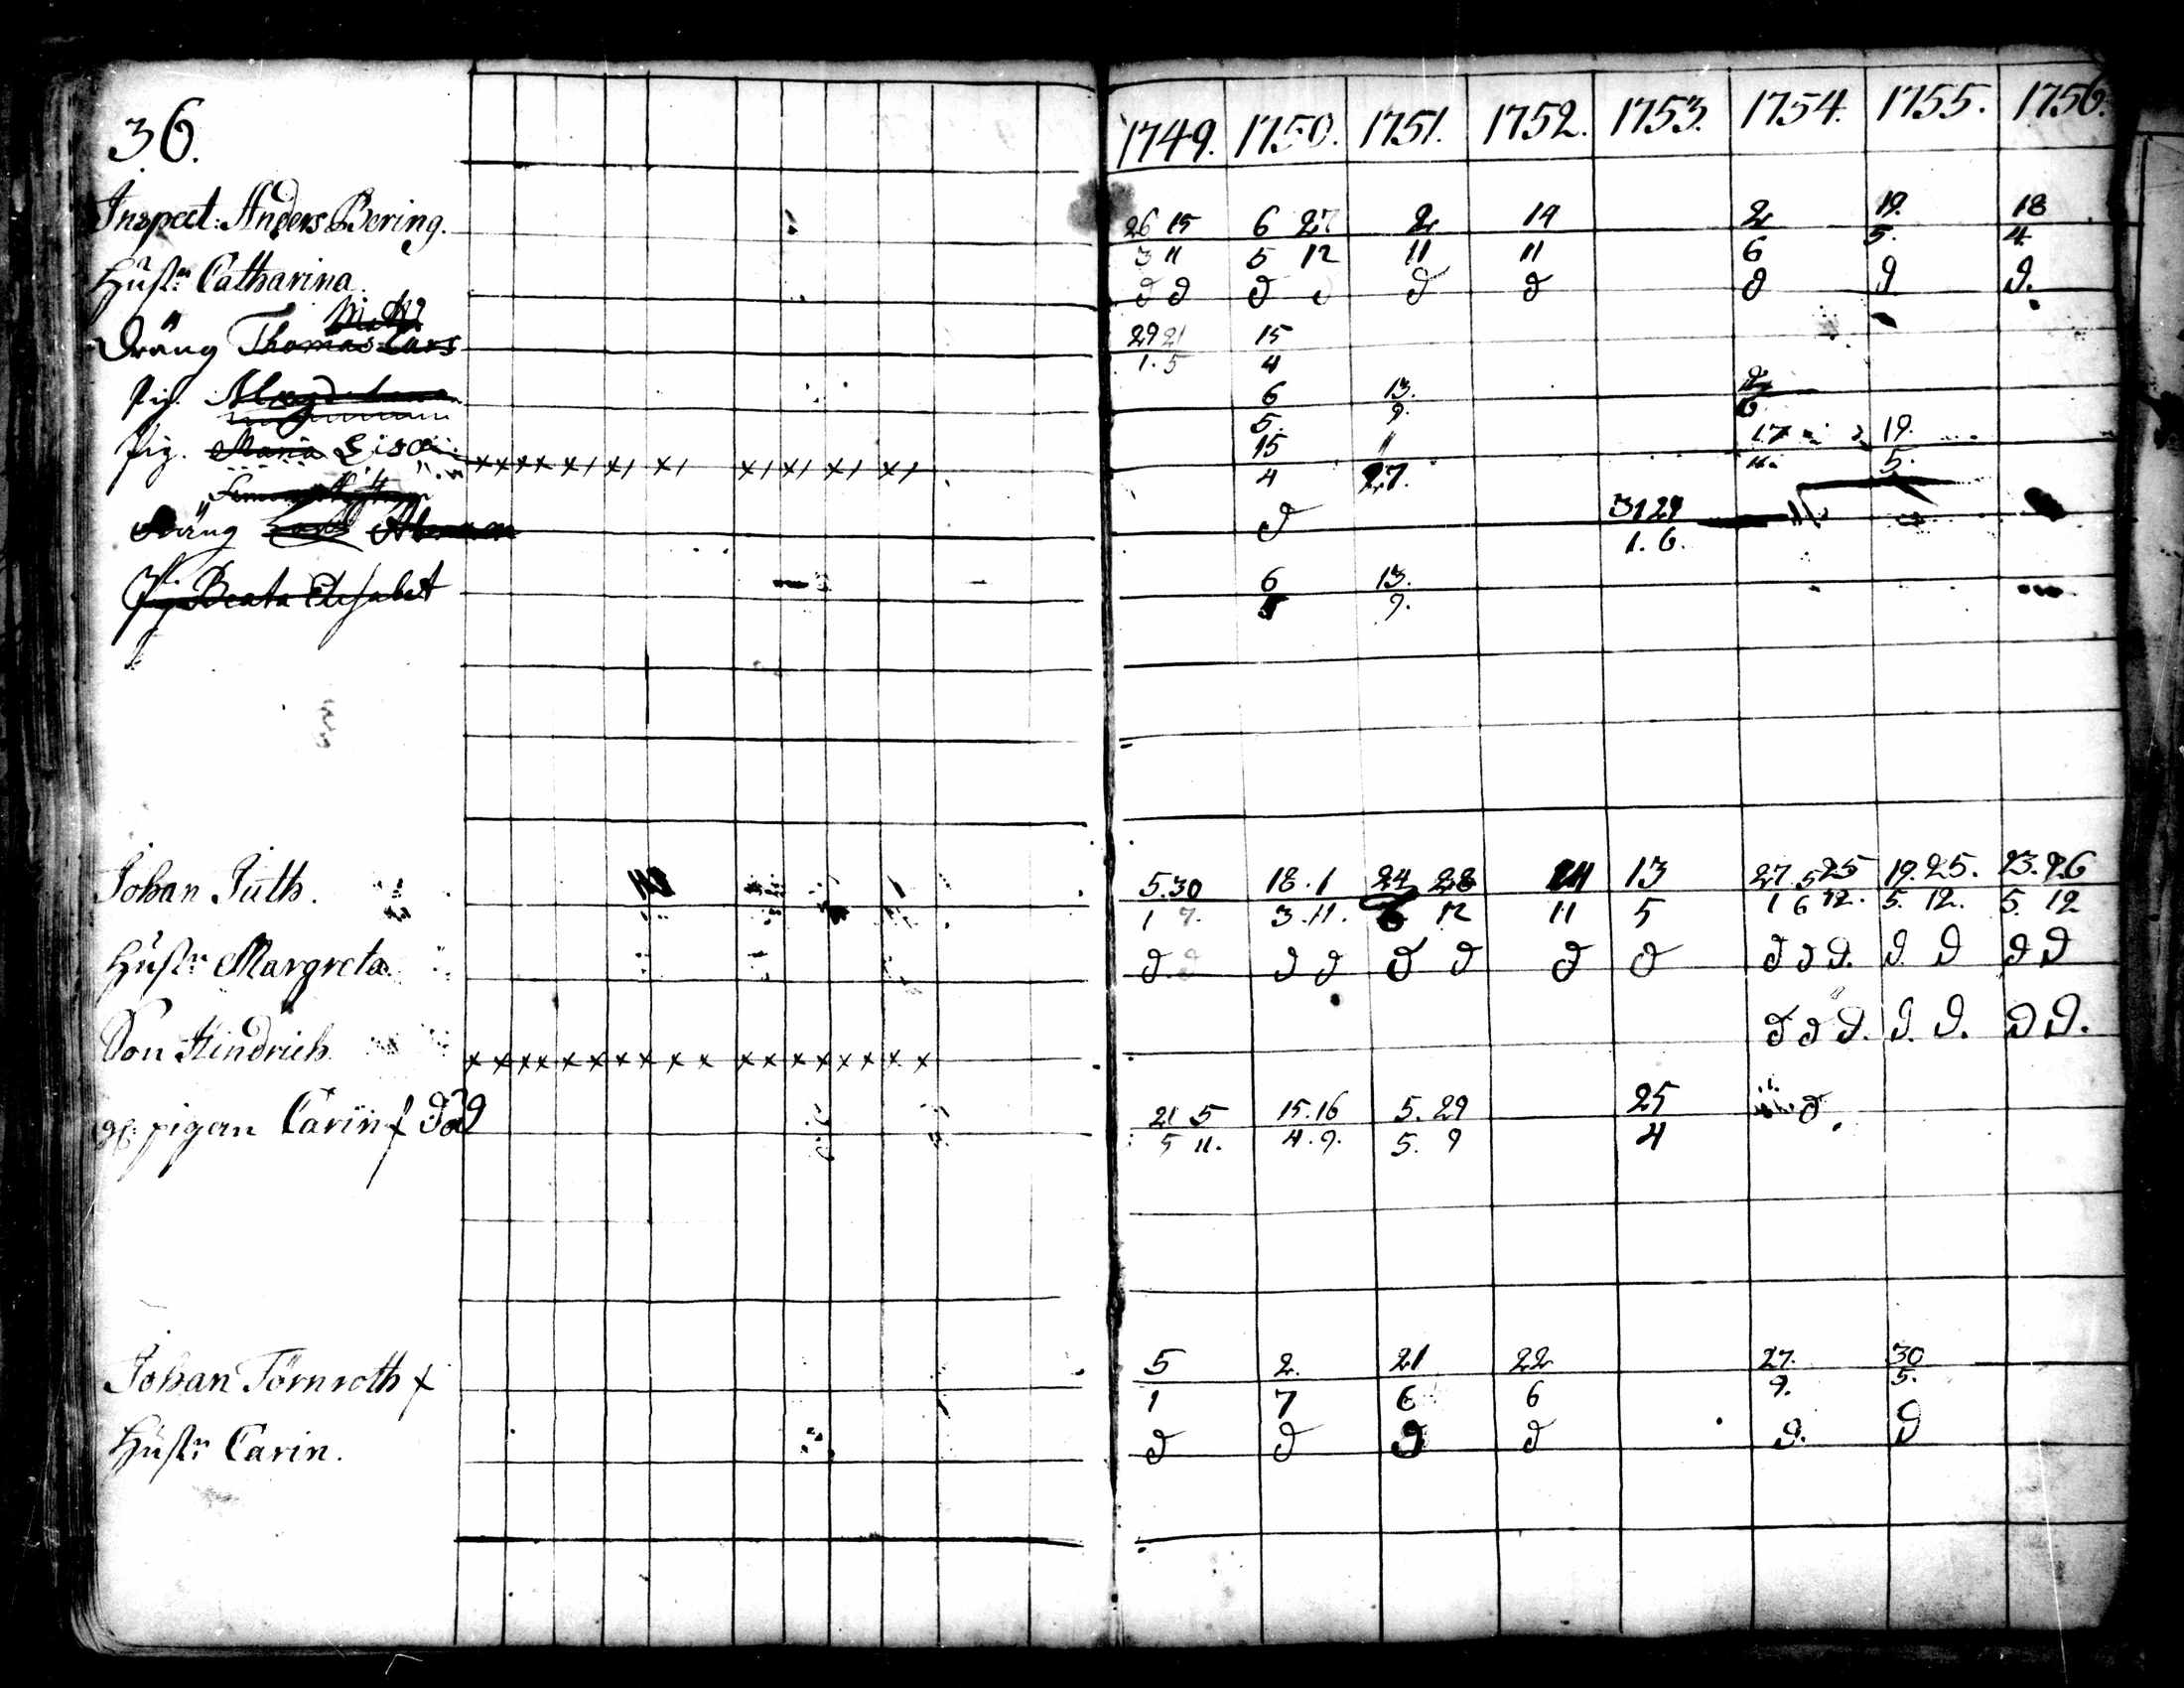 36.
1749. 1750. 1751. 1752. 1753. 1754. 1755. 1756.
Inspect: Anders Bering. 26 15 6 27 2 19 2 19. 18
3 11 5 12 11 11 6 5. 4.
Hustr Catharina. d d d d d d d d d.
Dräng Thomas Lars 29 21 15
1. 5 4
Pig. 6 13.
5. 9. 6
Pig. Maria Lisa 15 11 17 19.
x x x x x / x / x / x / x / x / x / 4 27. 5.
Dräng d 31 29
1. 6.
Pig. Beata Elisabet 6 13.
5 9.
Johan Juth. 5. 30 18. 1 24 28 24 13 27 5 25 19. 25. 23. 26
1 7. 3. 11. 6 12 11 5 1 6 12. 5. 12. 5. 12
Hustr Margreta. d. d d d d d d d d d d. d d d d
Son Hindrich d d d. d. d. d d.
x x x x x x x x x x x x x x x x x
pigan Carin † 21 5 15. 16 5. 29 25 d.
5 11. 4. 9. 5. 9 4
Johan Törnroth † 5 2. 21 22 27. 30
1 7 6 6 9. 5.
Hustr Carin. d d d d d. d